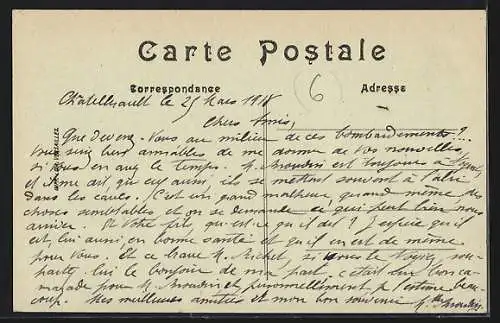 Carte Postale
Correspondance
6
Adresse
Châtellerault le 25 Mars 1918
Chers Amis,
Que devenez-vous au milieu de ces bombardements?
bien aimables de me donner de vos nouvelles,
si vous en avez le temps. M. est toujours à
et qui eux aussi, ils se mettent souvent à l'abri
dans les caves. C'est un grand malheur quand même, des
choses semblables et on se demande ce qui peut bien nous
arriver. Et votre fils, qu'est-ce qu'il dit? J'espère qu'il
est, lui aussi, en bonne santé et qu'il en est de même
pour vous. Et ce brave M. si vous le voyez, sou-
haitez lui le bonjour de ma part. C'était un bon ca-
marade pour M. et personnellement je l'estime beau-
coup. Mes meilleures amitiés et mon bon souvenir